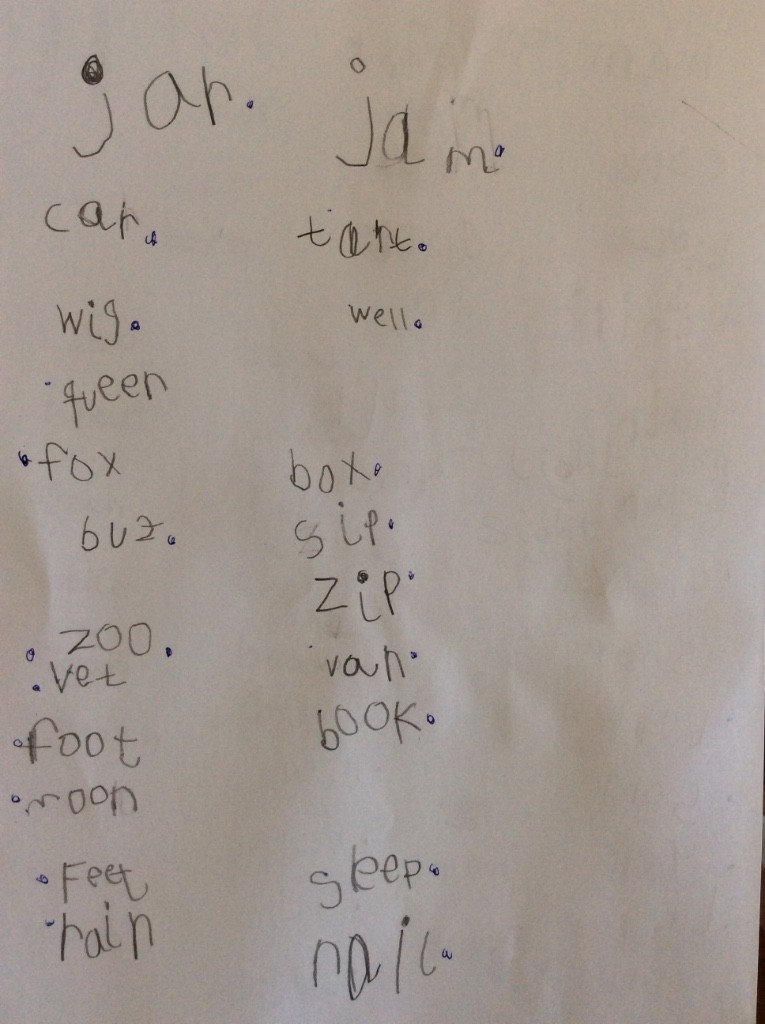 jar. jam.
car. tart.
wig. well.
queen
fox box.
buz. sip.
zip.
zoo. van.
vet
book.
foot
moon
feet sleep.
rain nail.